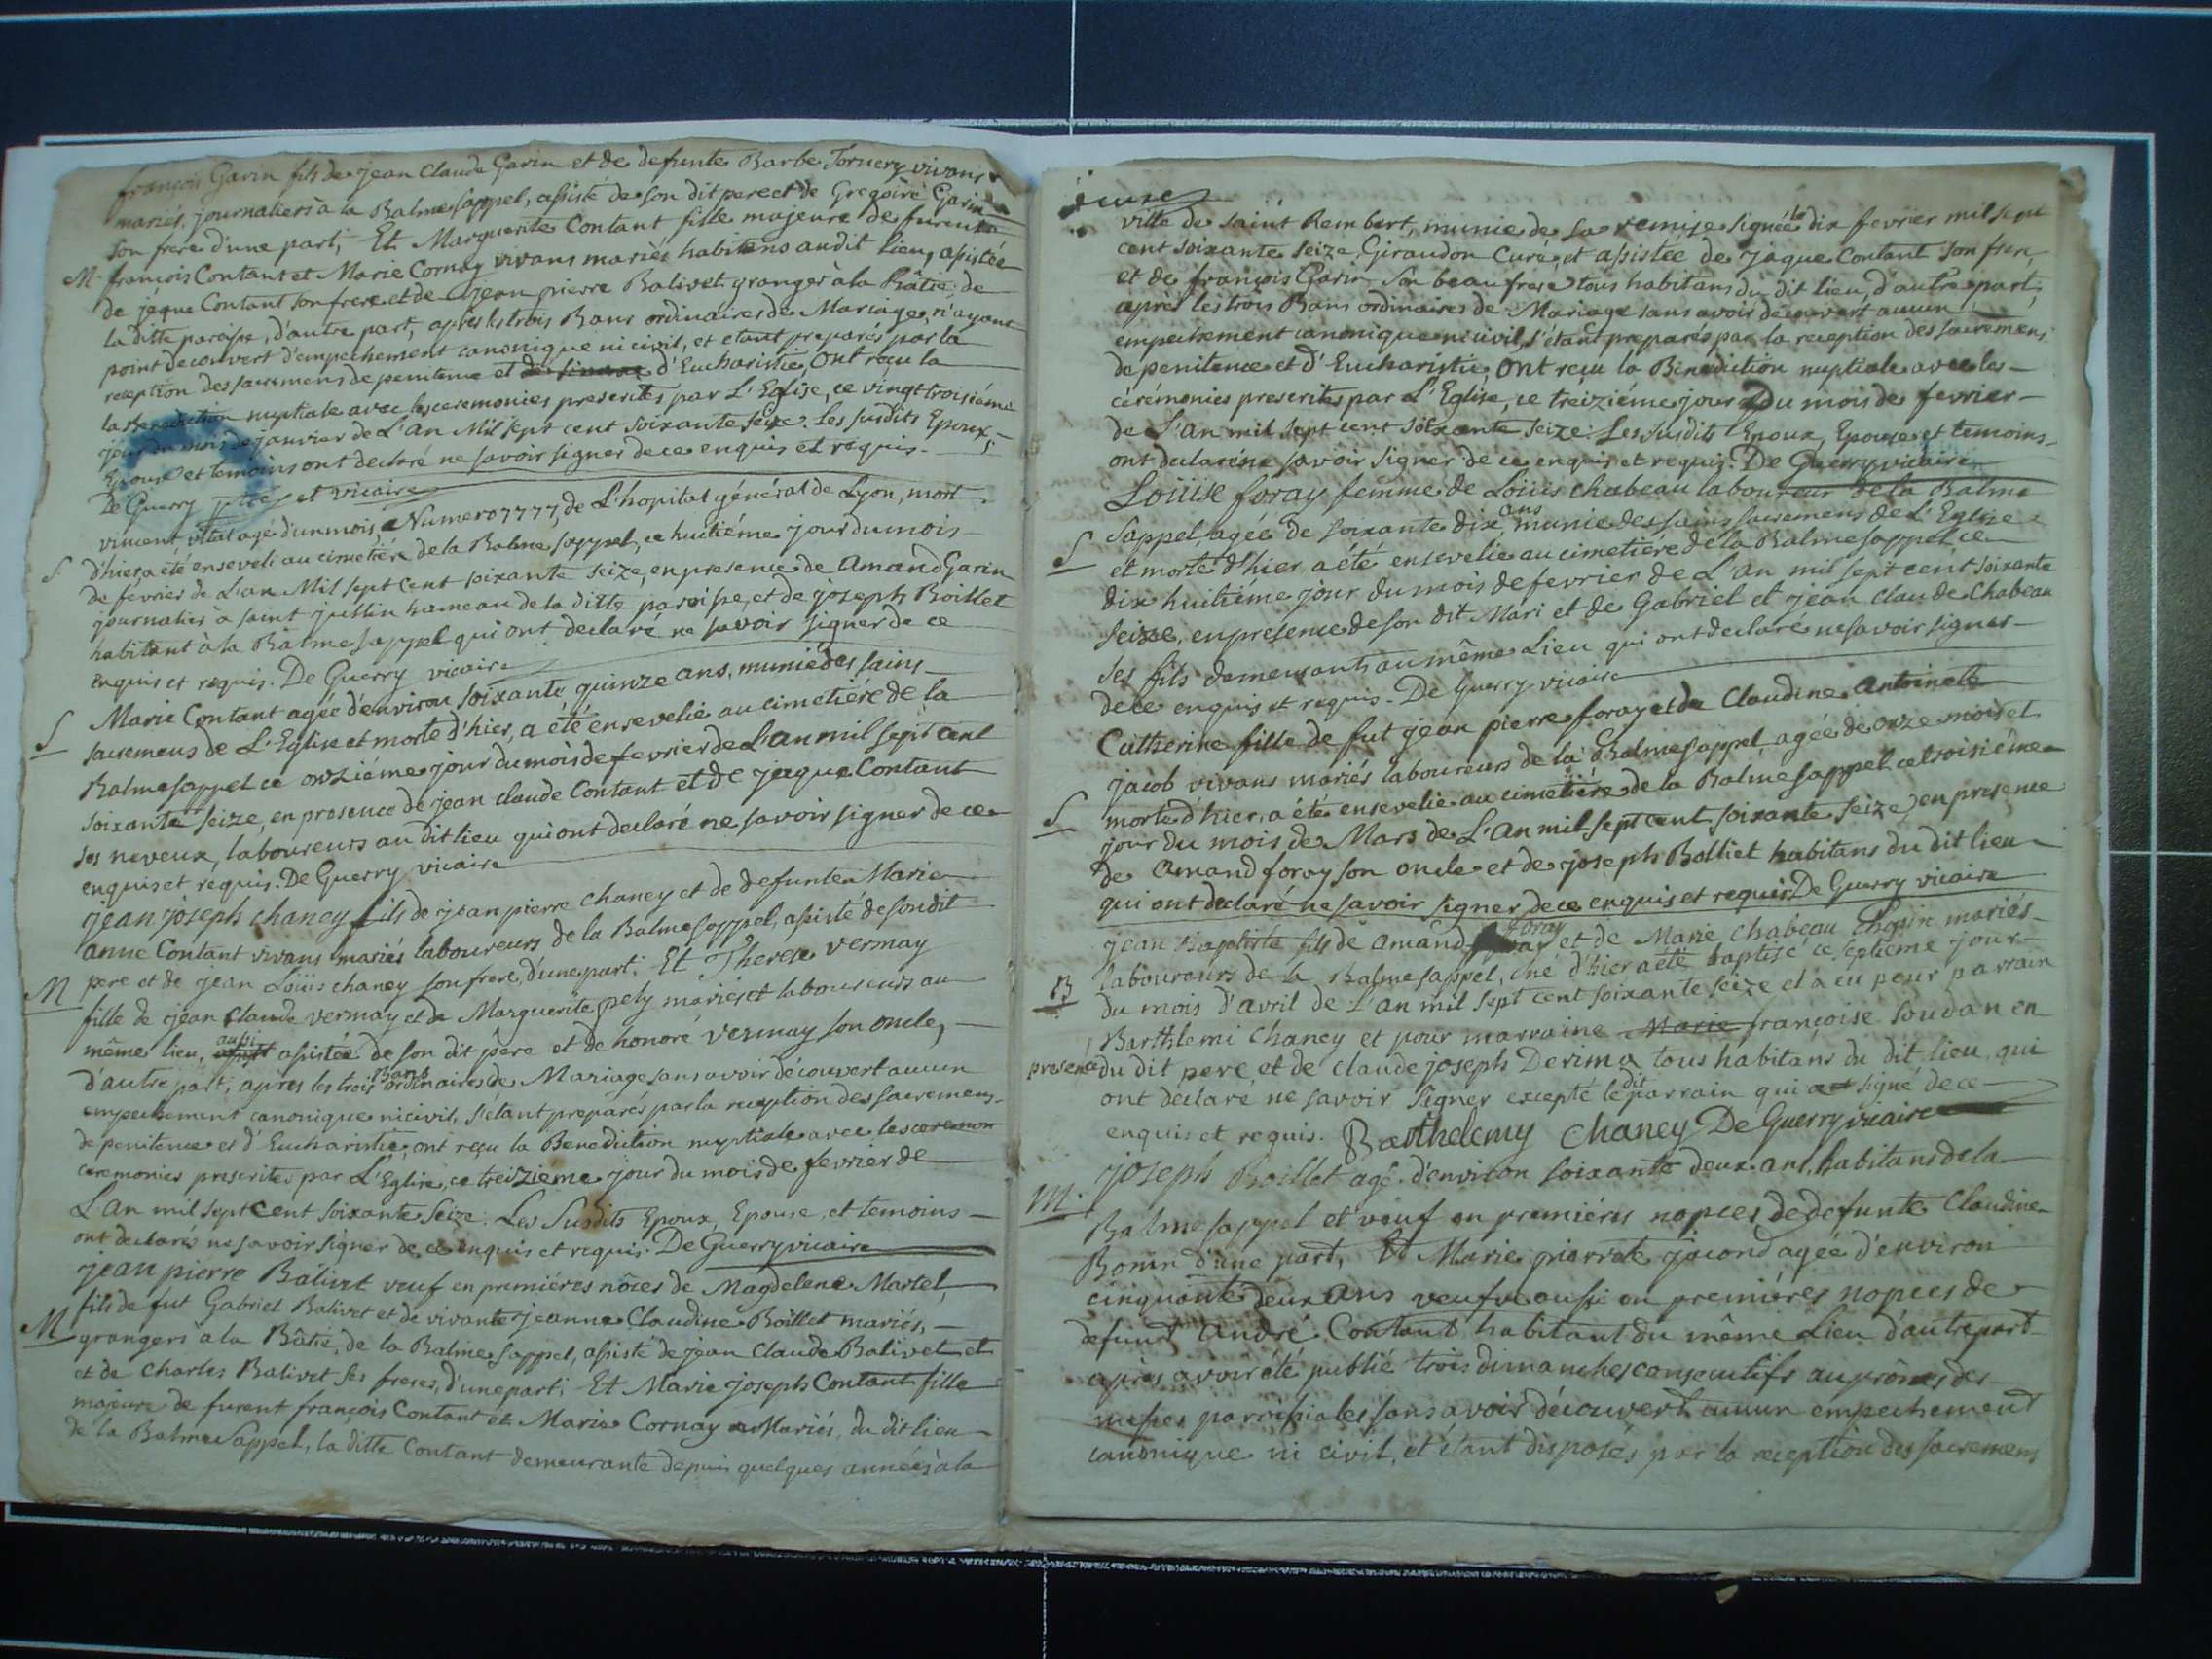 françois Garin fils de jean Claude Garin et de defunte Barbe Tornery vivans
mariés, journaliers à la Balme sappel, assisté de son dit pere et de Gregoire Garin
son frere d'une part; Et Marguerite Contant fille majeure de furent
M. françois Contant et Marie Cornay vivans mariés habitans au dit lieu, assistée
de jaque Contant son frere et de jean pierre Balivet granger à la Bâtie, de
la ditte paroisse, d'autre part, après les trois Bans ordinaires de Mariage, n'ayant
point decouvert d'empechement canonique ni civil, et etant preparés par la
reception des sacremens de penitence et d'Eucharistie, ont reçu la
la Benediction nuptiale avec les ceremonies prescrites par L'Eglise, ce vingt troisiéme
jour du mois de janvier de L'an Mil sept cent soixante seize. Les susdits Epoux,
Epouse et temoins ont declaré ne savoir signer de ce enquis et requis.
De Guerry ptre et vicaire
vincent vital agé d'un mois, Numero 7777, de L'hopital général de Lyon, mort
S d'hier a été enseveli au cimetiére de la Balme sappel, ce huitiéme jour du mois
de fevrier de L'an Mil sept cent soixante seize, en presence de Amand Garin
journalier à saint justin hameau de la ditte paroisse, et de joseph Boillet
habitant à la Balme sappel qui ont declaré ne savoir signer de ce
enquis et requis. De Guerry vicaire
Marie Contant agée d'environ soixante quinze ans, munie des sains
S sacremens de L'Eglise et morte d'hier, a été ensevelie au cimetiére de la
Balme sappel ce onziéme jour du mois de fevrier de L'an mil sept cent
soixante seize, en presence de jean claude Contant et de jaque Contant
ses neveux, laboureurs au dit lieu qui ont declaré ne savoir signer de ce
enquis et requis. De Guerry vicaire
jean joseph chaney fils de jean pierre chaney et de defunte Marie
anne Contant vivans mariés laboureurs de la Balme sappel, assisté de son dit
M pere et de jean Loüis chaney son frere, d'une part; Et Therese vermay
fille de jean claude vermay et de Marguerite pely mariés et laboureurs au
même lieu, aussi assistée de son dit pere et de honoré vermay son oncle,
d'autre part; après les trois Bans ordinaires de Mariage sans avoir découvert aucun
empechement canonique ni civil, s'étant preparés par la reception des sacremens
de penitence et d'Eucharistie, ont reçu la Benediction nuptiale avec les ceremon
ceremonies prescrites par L'Eglise, ce treiziéme jour du mois de fevrier de
L'an mil sept cent soixante seize. Les susdits Epoux, Epouse, et temoins
ont declarés ne savoir signer de ce enquis et requis. De Guerry vicaire
jean pierre Balivet veuf en premiéres nôces de Magdelene Martel,
fils de fut Gabriel Balivet et de vivante jeanne Claudine Boillet mariés,
M grangers à la Bâtie, de la Balme sappel, assisté de jean Claude Balivet et
et de Charles Balivet ses freres, d'une part; Et Marie joseph Contant fille
majeure de furent françois Contant et Marie Cornay Mariés, du dit lieu
de la Balme sappel, la ditte Contant demeurante depuis quelques années à la
ville de saint Rembert, munie de sa remise signée le dix fevrier mil sept
cent soixante seize, Giraudon Curé, et assistée de jaque Contant son frere,
et de françois Garin son beau frere tous habitans du dit lieu, d'autre part;
après les trois Bans ordinaires de Mariage sans avoir découvert aucun
empechement canonique ni civil, s'étant preparés par la reception des sacremens
de penitence et d'Eucharistie, ont reçu la Benediction nuptiale avec les
cérémonies prescrites par L'Eglise, ce treiziéme jour du mois de fevrier
de L'an mil sept cent soixante seize. Les susdits Epoux, Epouse et temoins
ont declaré ne savoir signer de ce enquis et requis. De Guerry vicaire
Loüise foray femme de Loüis chabeau laboureur de la Balme
sappel, agée de soixante dix ans munie des sains sacremens de L'Eglise
S et morte d'hier, a été ensevelie au cimetiére de la Balme sappel ce
dix huitiéme jour du mois de fevrier de L'an mil sept cent soixante
seize, en presence de son dit Mari et de Gabriel et jean claude Chabeau
ses fils demeurants au même Lieu qui ont declaré ne savoir signer
de ce enquis et requis. De Guerry vicaire
Catherine fille de fut jean pierre foray et de Claudine antoinete
jacob vivans mariés laboureurs de la Balme sappel, agée de onze mois et
S morte d'hier, a été ensevelie au cimetiére de la Balme sappel ce troisiéme
jour du mois de Mars de L'an mil sept cent soixante seize, en presence
de Amand foray son oncle et de joseph Bolliet habitans du dit lieu
qui ont declaré ne savoir signer de ce enquis et requis De Guerry vicaire
jean Baptiste fils de Amand foray et de Marie chabeau chopin mariés
laboureurs de la Balme sappel, né d'hier a été baptisé ce septiéme jour
B du mois d'avril de L'an mil sept cent soixante seize et a eu pour parrain
Barthlemi Chaney et pour marraine Marie françoise Soudan en
presence du dit pere, et de claude joseph Derima tous habitans du dit lieu, qui
ont declaré ne savoir signer excepté le dit parrain qui a signé de ce
enquis et requis. Barthelemy Chaney De Guerry vicaire
joseph Boillet agé d'environ soixante deux ans, habitans de la
M. Balme sappel et veuf en premiéres nopces de defunte Claudine
Bonin d'une part, Et Marie pierrete jacond agée d'environ
cinquante deux ans veufve aussi en premiéres nopces de
defunt André Contant habitant du même Lieu d'autre part
après avoir été publié trois dimanches consecutifs au prônes des
messes paroissiales sans avoir découvert aucun empechement
canonique ni civil, et étant disposés par la reception des sacremens